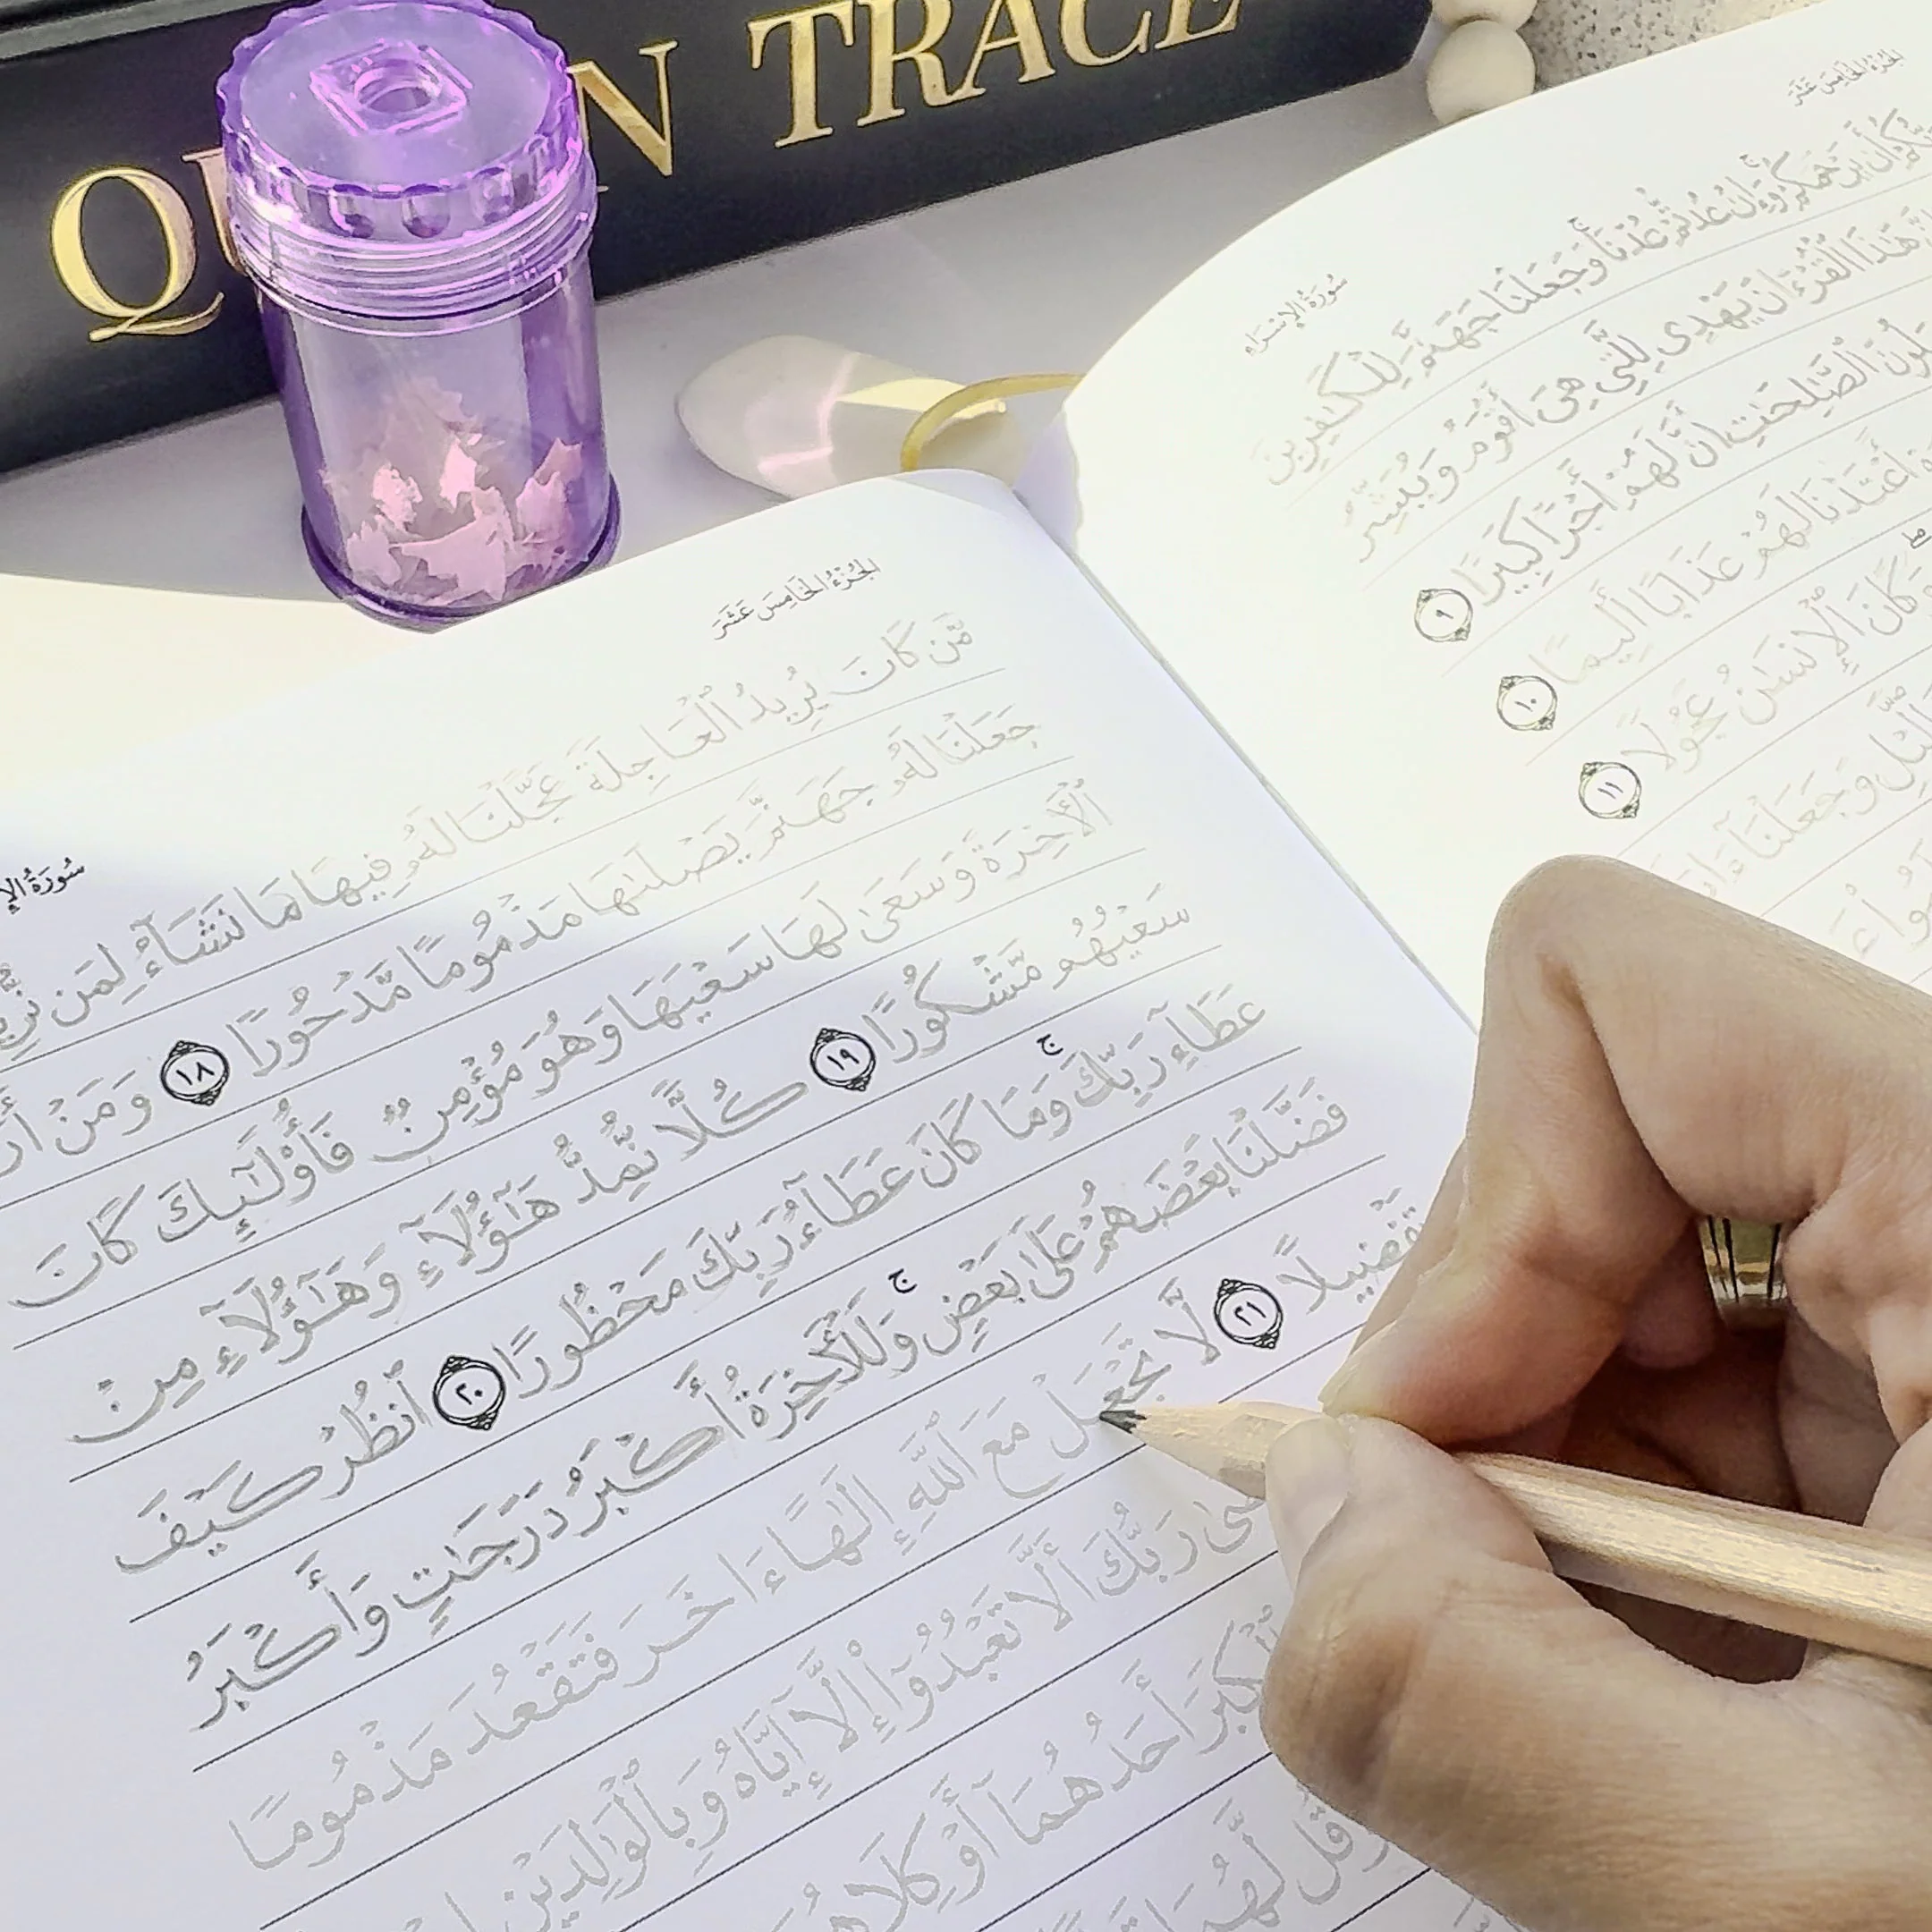 QU N TRACE
الجزء الخامس عشر
سورة الإسراء
وَإِنْ عُدتُّمْ عُدْنَا ۚ وَجَعَلْنَا جَهَنَّمَ لِلْكَٰفِرِينَ
هَٰذَا ٱلْقُرْءَانَ يَهْدِى لِلَّتِى هِىَ أَقْوَمُ وَيُبَشِّرُ
ٱلصَّٰلِحَٰتِ أَنَّ لَهُمْ أَجْرًا كَبِيرًا ٩
أَعْتَدْنَا لَهُمْ عَذَابًا أَلِيمًا ١٠
وَكَانَ ٱلْإِنسَٰنُ عَجُولًا ١١
وَجَعَلْنَآ
الجزء الخامس عشر
سورة الإ
مَّن كَانَ يُرِيدُ ٱلْعَاجِلَةَ عَجَّلْنَا لَهُۥ فِيهَا مَا نَشَآءُ لِمَن
جَعَلْنَا لَهُۥ جَهَنَّمَ يَصْلَىٰهَا مَذْمُومًا مَّدْحُورًا ١٨ وَمَنْ
ٱلْءَاخِرَةَ وَسَعَىٰ لَهَا سَعْيَهَا وَهُوَ مُؤْمِنٌ فَأُو۟لَٰٓئِكَ كَانَ
سَعْيُهُم مَّشْكُورًا ١٩ كُلًّا نُّمِدُّ هَٰٓؤُلَآءِ وَهَٰٓؤُلَآءِ مِنْ
عَطَآءِ رَبِّكَ ۚ وَمَا كَانَ عَطَآءُ رَبِّكَ مَحْظُورًا ٢٠ ٱنظُرْ كَيْفَ
فَضَّلْنَا بَعْضَهُمْ عَلَىٰ بَعْضٍ ۚ وَلَلْءَاخِرَةُ أَكْبَرُ دَرَجَٰتٍ وَأَكْبَرُ
تَفْضِيلًا ٢١ لَّا تَجْعَلْ مَعَ ٱللَّهِ إِلَٰهًا ءَاخَرَ فَتَقْعُدَ مَذْمُومًا
رَبُّكَ أَلَّا تَعْبُدُوٓا۟ إِلَّآ إِيَّاهُ وَبِٱلْوَٰلِدَيْنِ
ٱلْكِبَرَ أَحَدُهُمَآ أَوْ كِلَاهُمَا
وَقُل لَّهُمَا